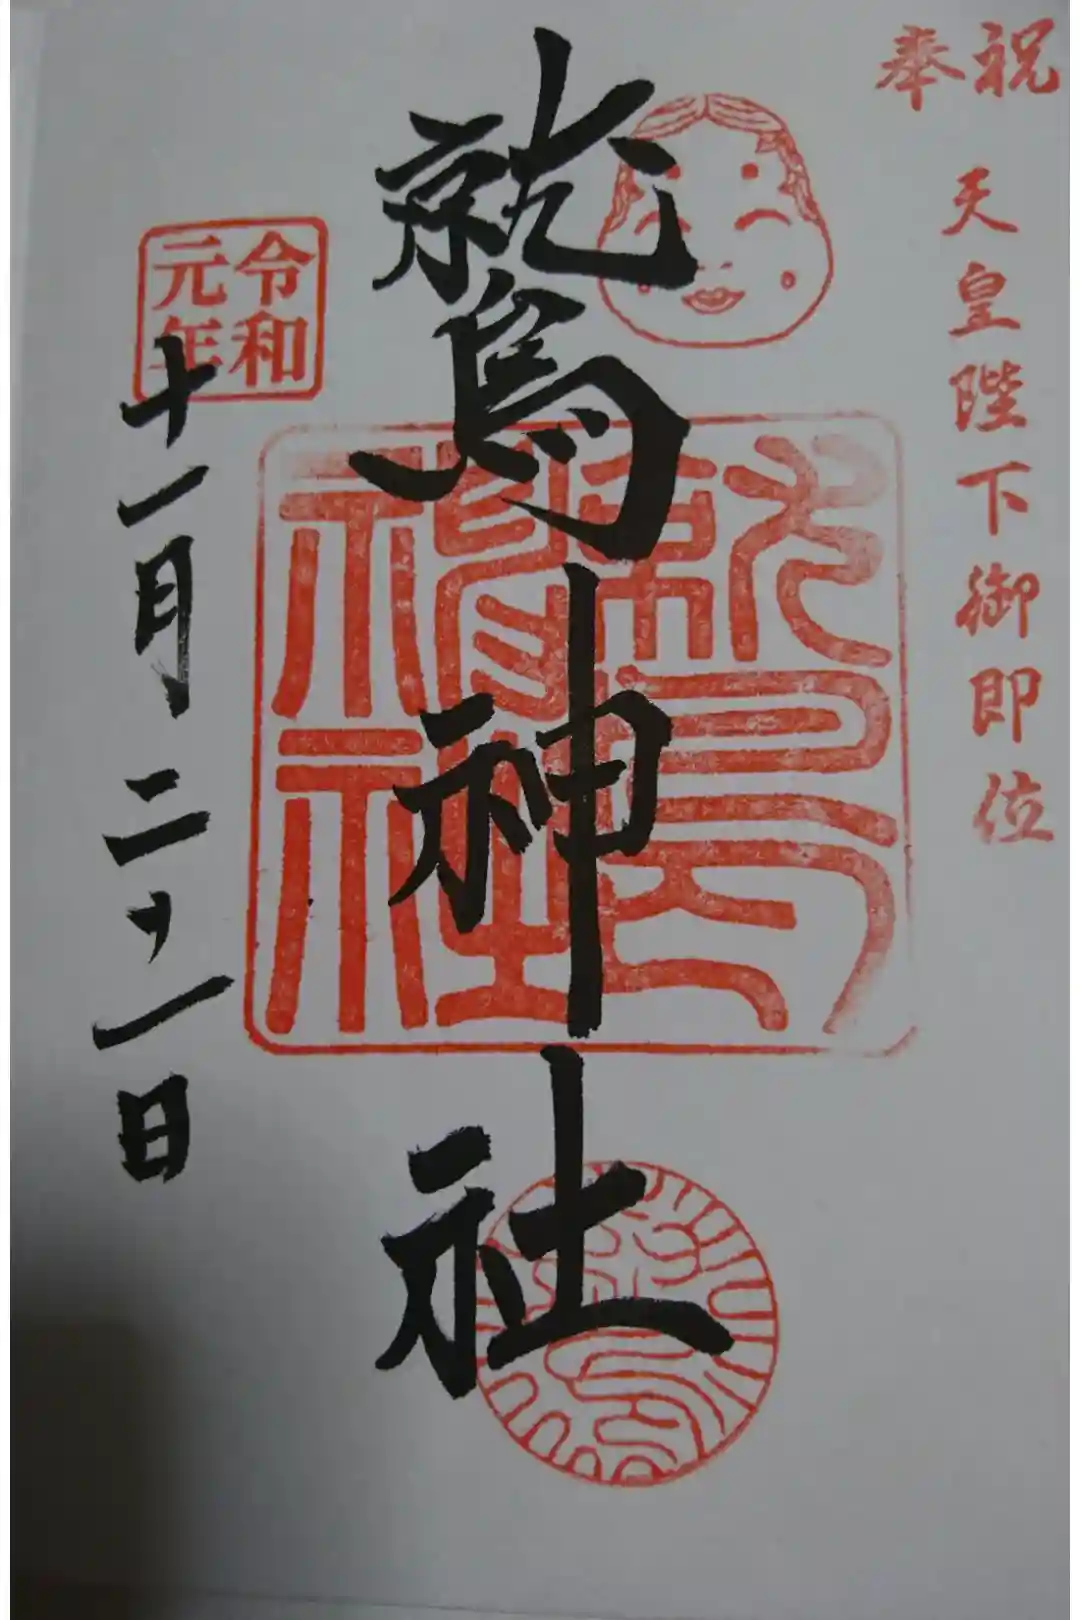 奉祝
天皇陛下御即位
鷲神社
鷲神社
令和
元年
十一月二 日